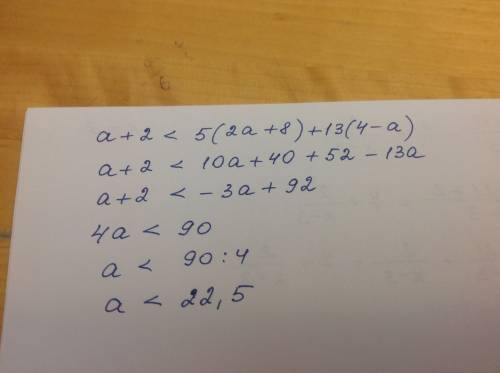 a + 2 < 5(2a+8)+13(4-a)
a + 2 < 10a+40+52-13a
a + 2 < -3a+92
4a < 90
a < 90:4
a < 22,5